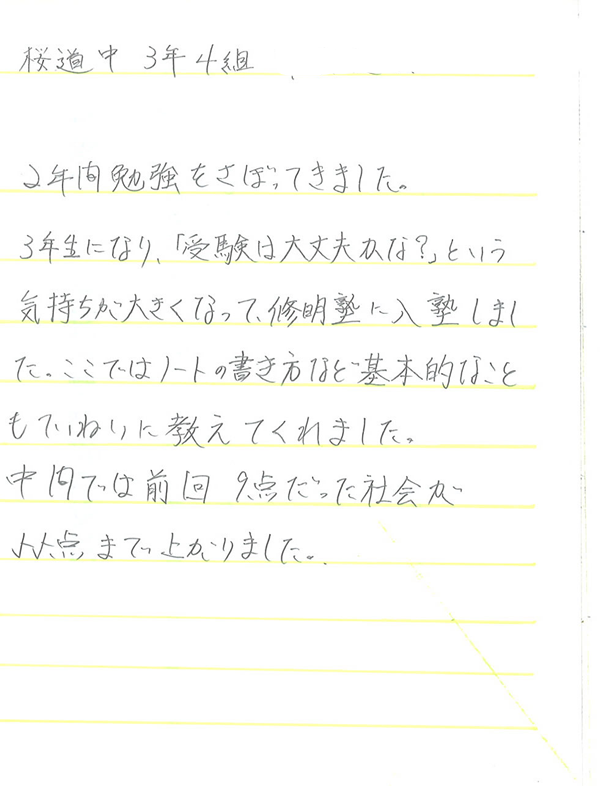 桜道中 3年4組
2年間勉強をさぼってきました。
3年生になり、「受験は大丈夫かな?」という
気持ちが大きくなって、修明塾に入塾しまし
た。ここではノートの書き方など基本的なこと
もていねいに教えてくれました。
中間では前回 9点だった社会が
点まで上がりました。